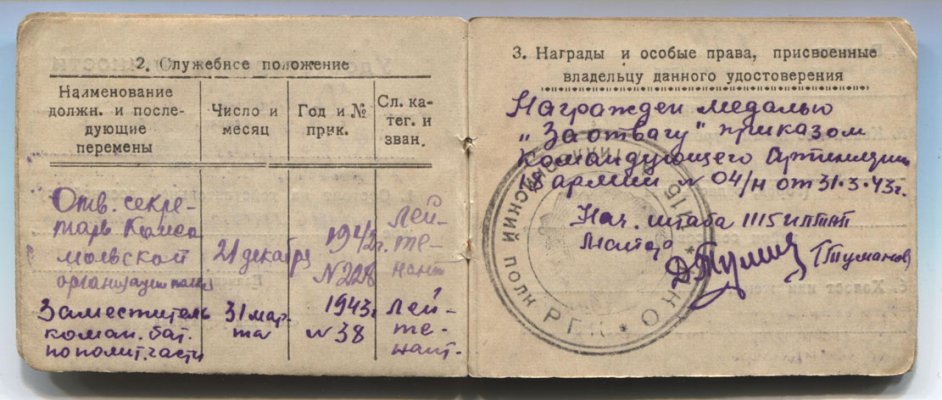 2. Служебное положение
Наименование
должн. и после-
дующие
перемены
Число и
месяц
Год и №
прик.
Сл. ка-
тег. и
зван.
Отв. секре-
тарь Комсо
мольской
организации полка
21 декабря
1942г.
N228
Лей-
те-
нант
Заместитель
коман. бат.
по полит. части
31 мар-
та
1943г.
N 38
Лей-
те-
нант.
3. Награды и особые права, присвоенные
владельцу данного удостоверения
Награжден медалью
„За отвагу" приказом
Командующего Артиллерии
армии N 04/н от 31.3.43г.
Нач. штаба 1115 иптап
Майор
(Туманов)
ПОЛК РГК * О Н